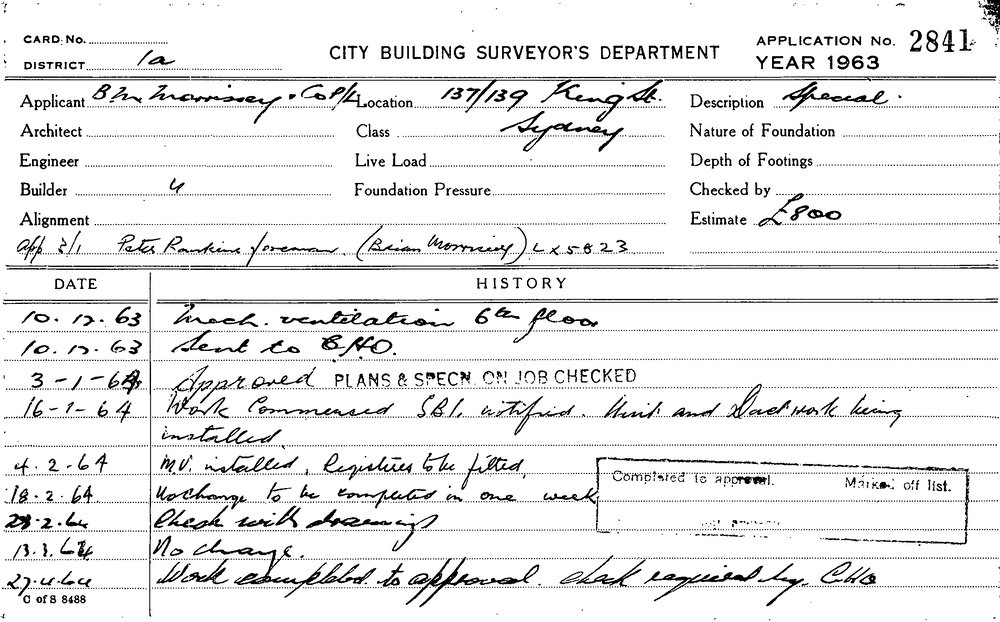 CARD No.
DISTRICT 1a
CITY BUILDING SURVEYOR'S DEPARTMENT
APPLICATION No. 2841
YEAR 1963
Applicant B M Morrissey & Co P/L
Location 137/139 King St.
Sydney
Description Special.
Architect
Class
Nature of Foundation
Engineer
Live Load
Depth of Footings
Builder "
Foundation Pressure
Checked by
Alignment
Estimate £800
App 3/1 Peter Rankine foreman (Brian Morrissey) LX5823
DATE HISTORY
10.12.63 Mech. ventilation 6th floor
10.12.63 Sent to CHO.
3-1-64 Approved PLANS & SPECN. ON JOB CHECKED
16-1-64 Work Commenced SBI. notified. Unit and Ductwork being
installed.
4.2.64 M.V. installed, Registers to be fitted,
18.2.64. No change to be completed in one week
28.2.64 Check with drawings
13.3.64 No change.
27.4.64 Work completed to approval. check required by CHO
Completed to approval. Marked off list.
C of S 8488